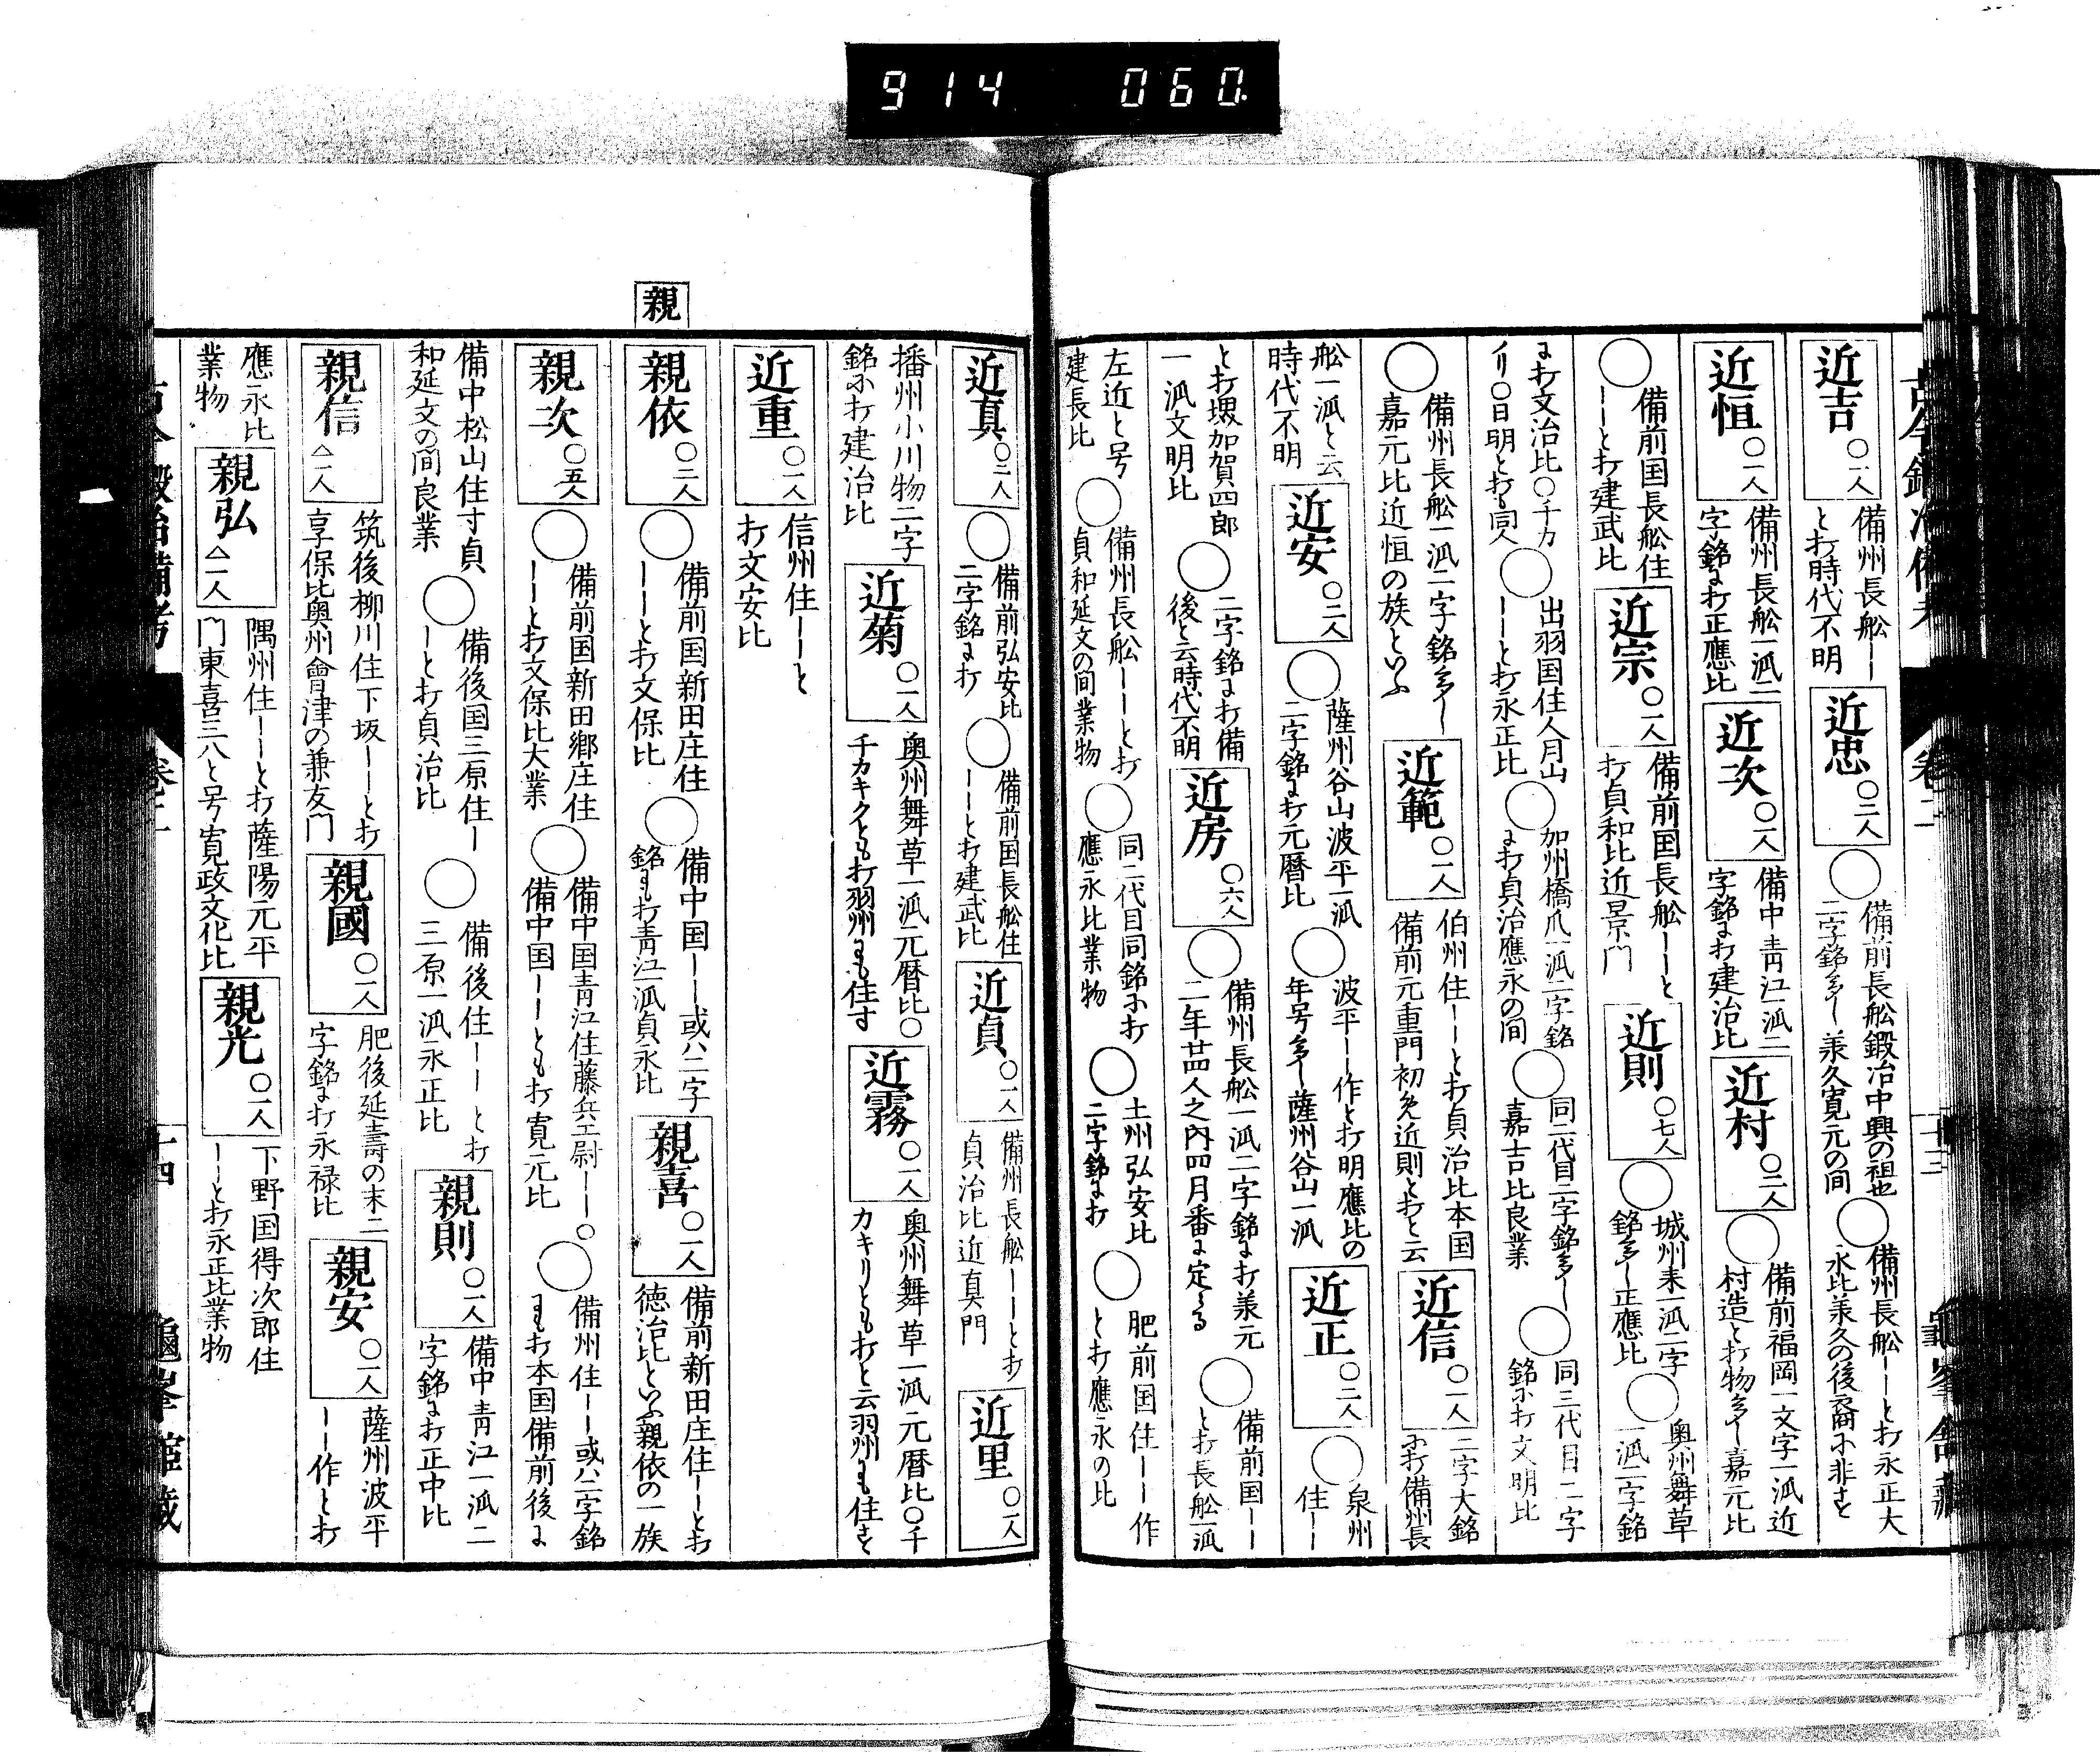 914 060
近吉 〇一人 備州長舩ーーと打時代不明 近忠 〇二人 ◯備前長舩鍛冶中興の祖也二字銘多し兼久寛元の間 ◯備州長舩ーーと打永正大永比兼久の後裔に非ず
近恒 〇一人 備州長舩一派二字銘に打正應比 近次 〇一人 備中青江一派二字銘に打建治比 近村 〇二人 ◯備前福岡一文字一派近村造と打物多し嘉元比
◯備前国長舩住ーーと打建武比 近宗 〇一人 備前国長舩ーーと打貞和比近景門 近則 〇七人 ◯城州来一派二字銘多し正應比 ◯奥州舞草一派二字銘
に打文治比〇千カノリ〇日明と打も同人 ◯出羽国住人月山ーーと打永正比 ◯加州橋爪一派二字銘に打貞治應永の间 ◯同二代目二字銘多し嘉吉比良業 ◯同三代目二字銘に打文明比
◯備州長舩一派二字銘多し嘉元比近恒の族といふ 近範 〇一人 伯州住ーーと打貞治比本国備前元重門初め近則と打と云 近信 〇一人 二字大銘に打備州長
舩一派と云時代不明 近安 〇二人 ◯薩州谷山波平一派二字銘に打元暦比 ◯波平ーー作と打明應比の年号多し薩州谷山一派 近正 〇二人 ◯泉州住ーー
と打堺加賀四郎一派文明比 ◯二字銘に打備後と云時代不明 近房 〇六人 ◯備州長舩一派二字銘に打兼元二年廿四人之内四月番に定る ◯備前国ーーと打長舩一派
左近と号建長比 ◯備州長舩ーーと打貞和延文の间業物 ◯同二代目同銘に打應永比業物 ◯土州弘安比二字銘に打 ◯肥前国住ーー作と打應永の比
近真 〇二人 ◯備前弘安比二字銘に打 ◯備前国長舩住ーーと打建武比 近貞 〇一人 備州長舩ーーと打貞治比近真門 近里 〇一人
播州小川物二字銘に打建治比 近菊 〇一人 奥州舞草一派元暦比〇千カキクとも打羽州にも住す 近霧 〇一人 奥州舞草一派元暦比〇千カキリとも打と云羽州にも住す
近重 〇一人 信州住ーーと打文安比
親
親依 〇二人 ◯備前国新田庄住ーーと打文保比 ◯備中国ーー或ハ二字銘にも打青江一派貞永比 親喜 〇一人 備前新田庄住ーーと打徳治比といふ親依の一族
親次 〇五人 ◯備前国新田郷庄住ーーと打文保比大業 ◯備中国青江住藤兵工尉ーー。備中国ーーとも打寛元比 ◯備州住ーー或ハ二字銘にも打本国備前後に
備中松山住寸貞和延文の间良業 ◯備後国三原住ーーと打貞治比 ◯備後住ーーと打三原一派永正比 親則 〇一人 備中青江一派二字銘に打正中比
親信 △一人 筑後柳川住下坂ーーと打享保比奥州會津の兼友門 親國 〇一人 肥後延壽の末二字銘に打永禄比 親安 〇一人 薩州波平ーー作と打
應永比業物 親弘 △一人 隅州住ーーと打薩陽元平門東喜三八と号寛政文化比 親光 〇一人 下野国得次郎住ーーと打永正比業物